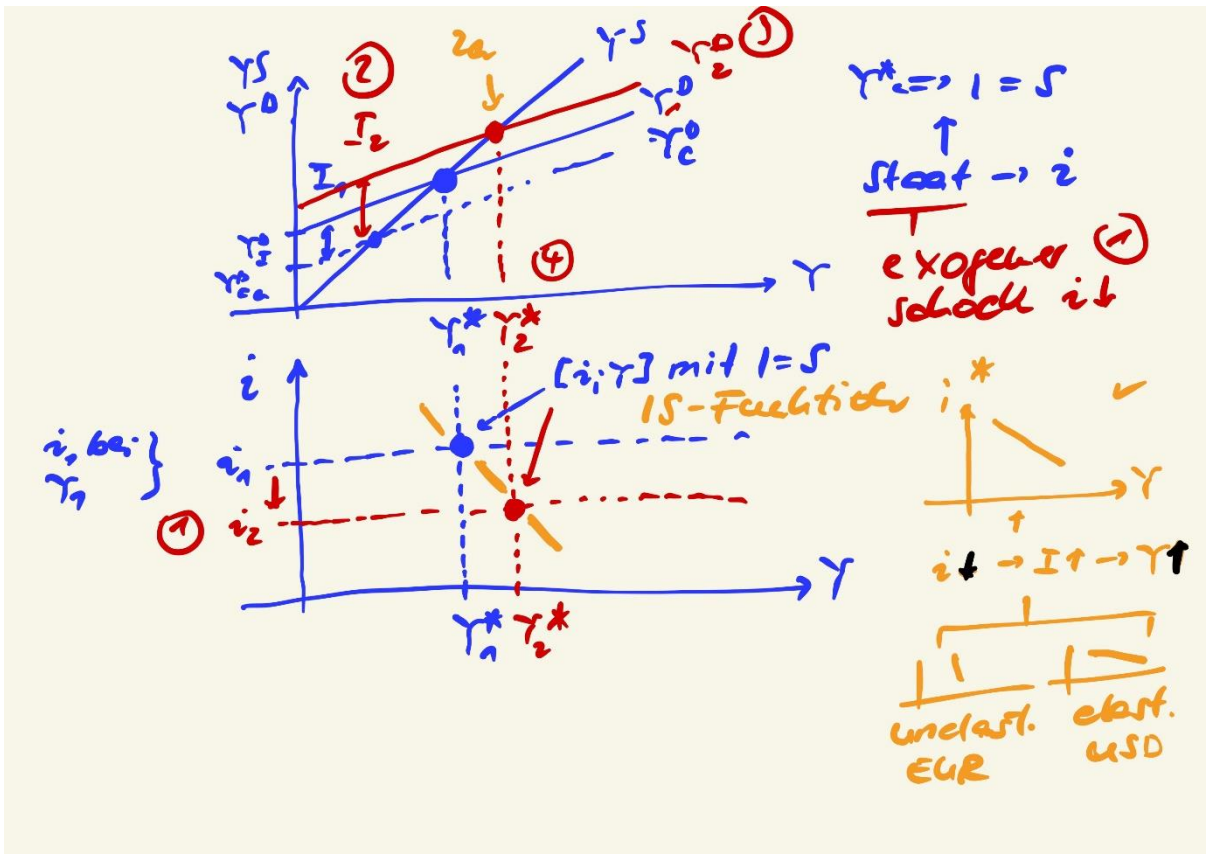 Y^S
Y^D
②
I_2
2a
Y^S
Y_2^D ③
Y_1^D
Y_C^D
I_1
Y_I^D
Y_Ca^D
④
Y
Y_1^* Y_2^*
Y^* <=> I = S
↑
Staat -> i
exogener ①
Schock i↓
i
[i, Y] mit I = S
IS-Funktion
i_1 bei
Y_1 }
i_1
① i_2
Y
Y_1^* Y_2^*
i * ✓
Y
↑
i↓ -> I↑ -> Y↑
unelast. elast.
EUR USD